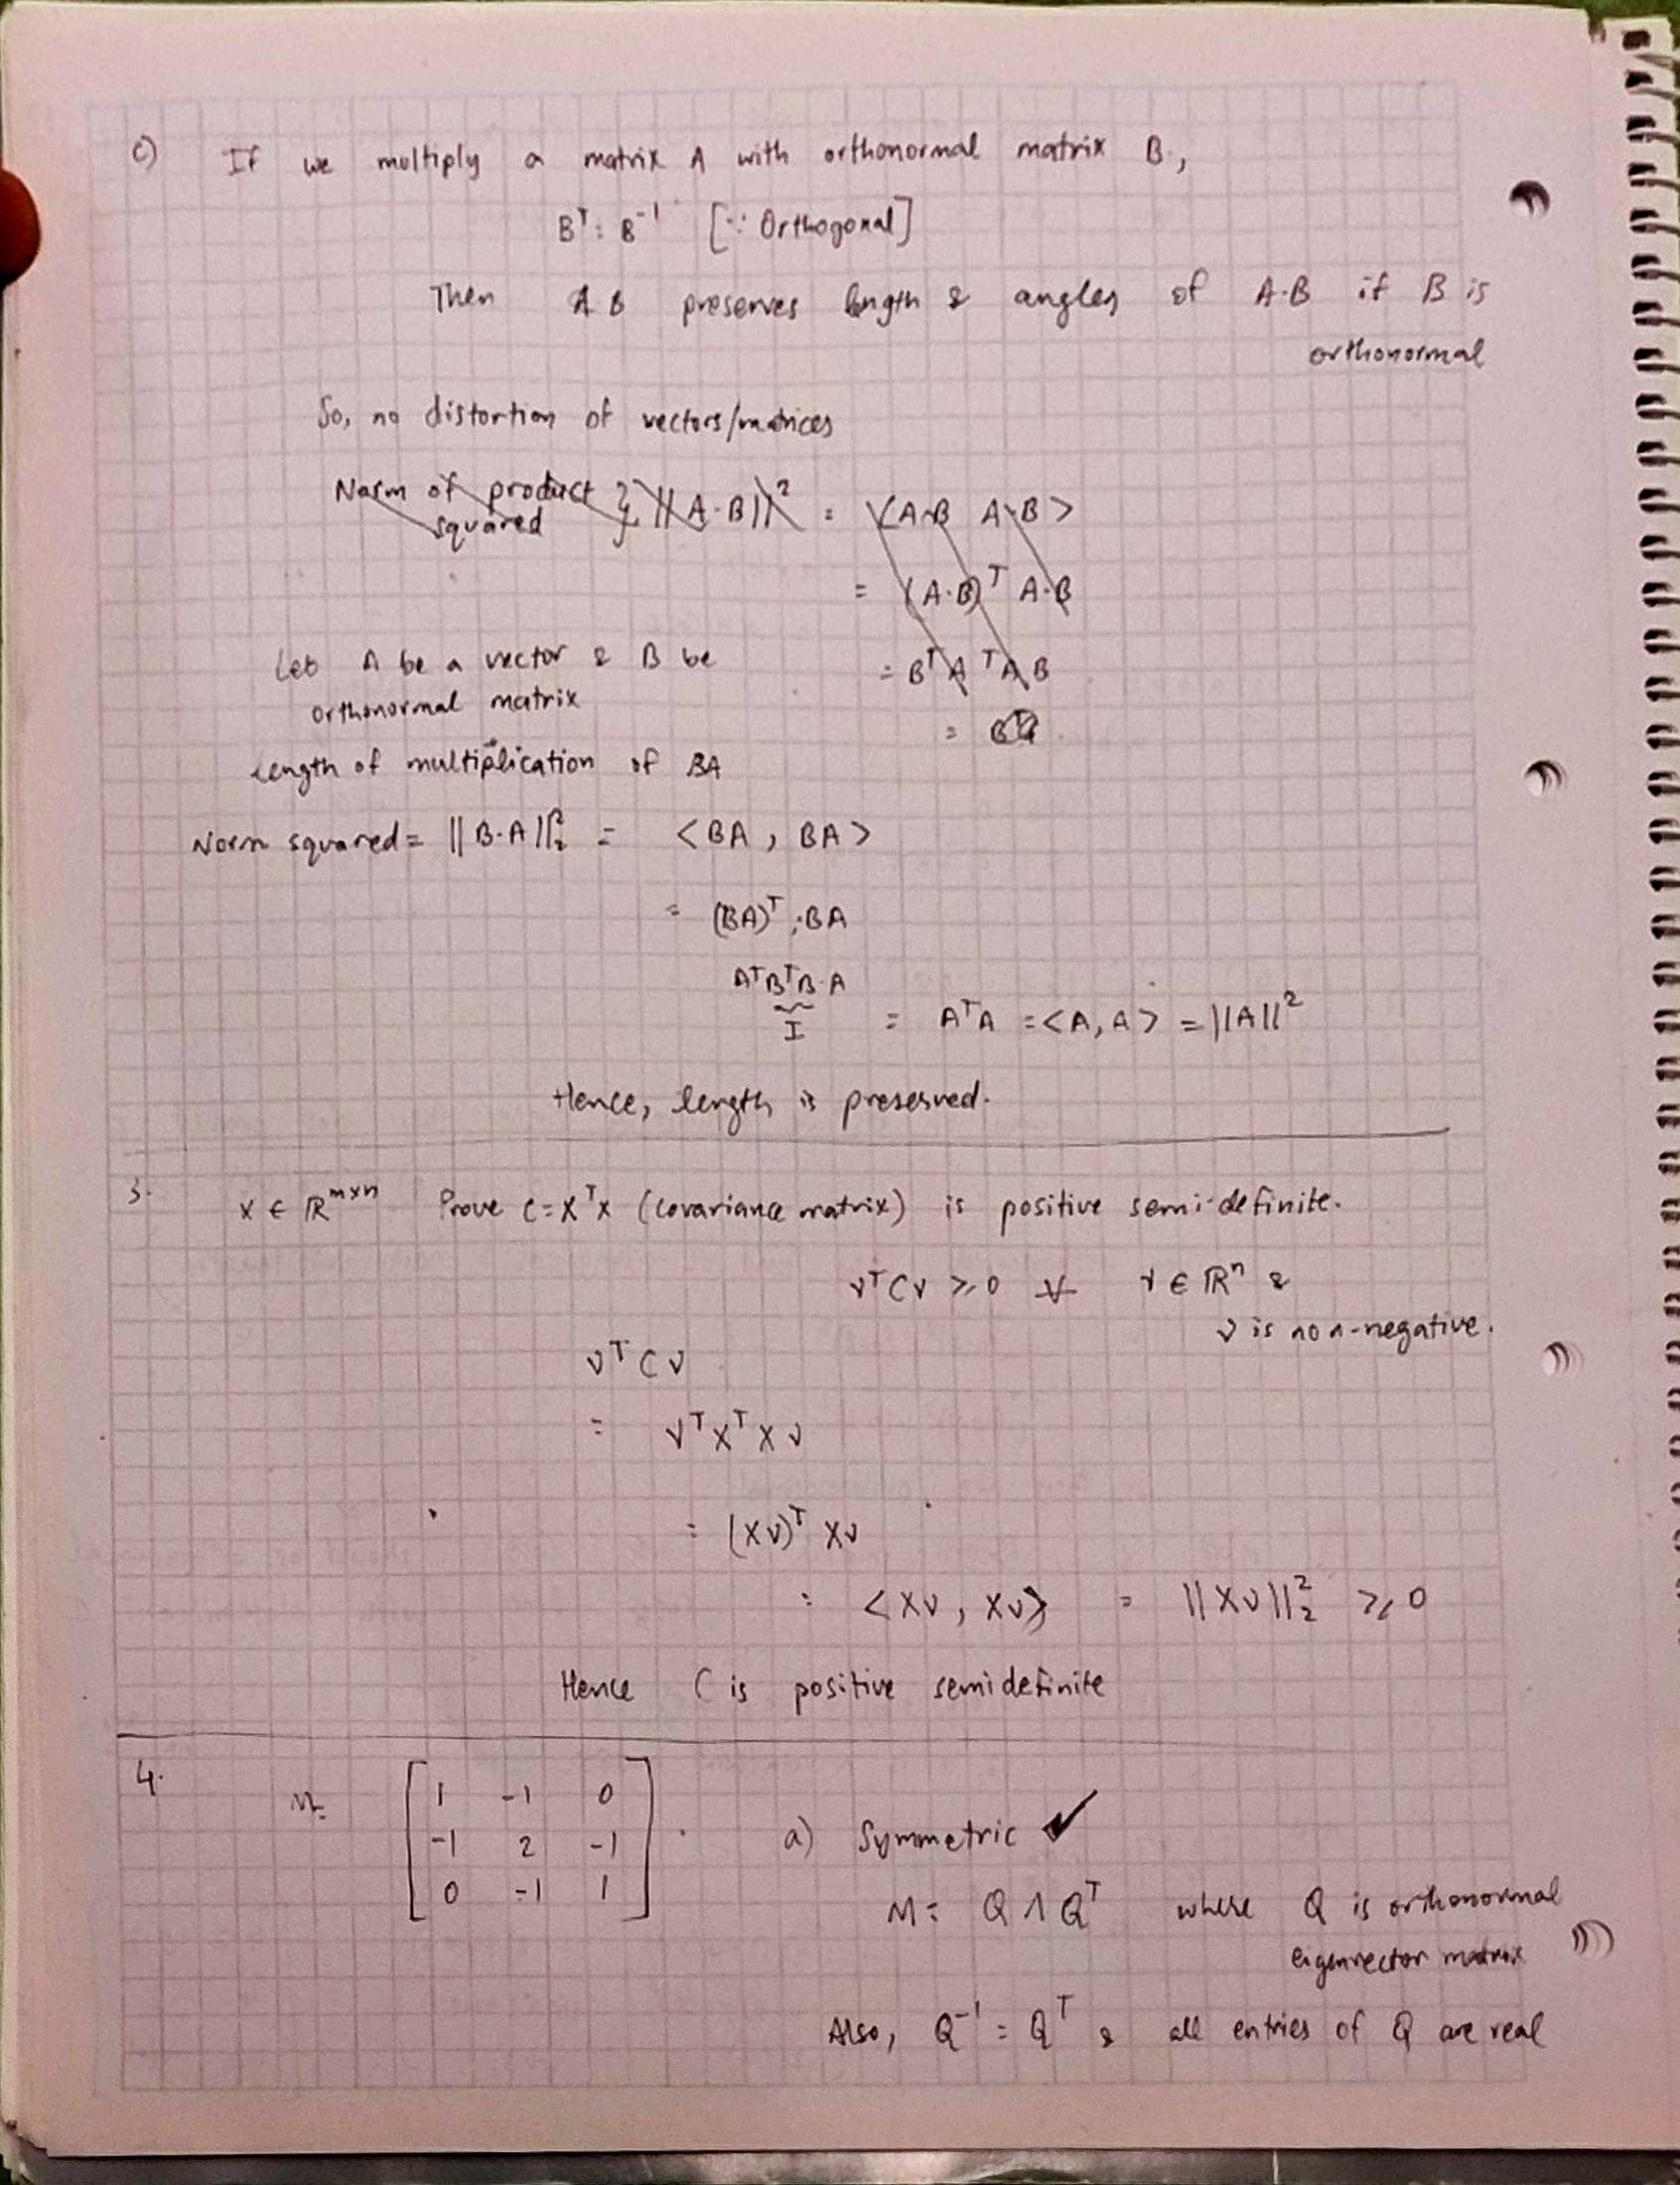 c) If we multiply a matrix A with orthonormal matrix B,
Bᵀ = B⁻¹ [∵ Orthogonal]
Then A B preserves length & angles of A·B if B is
orthonormal
So, no distortion of vectors/matrices
Norm of product squared } ||A·B||² = <A·B A·B>
= (A·B)ᵀ A·B
= Bᵀ Aᵀ A B
Let A be a vector & B be
orthonormal matrix
Length of multiplication of BA
Norm squared = ||B·A||₂² = <BA, BA>
= (BA)ᵀ · BA
AᵀBᵀB·A
I = AᵀA = <A, A> = ||A||²
Hence, length is preserved.
3. X ∈ ℝᵐˣⁿ Prove C = XᵀX (covariance matrix) is positive semi-definite.
vᵀCv ≥ 0 ∀ v ∈ ℝⁿ &
v is non-negative.
vᵀCv
= vᵀXᵀXv
= (Xv)ᵀ Xv
= <Xv, Xv> = ||Xv||₂² ≥ 0
Hence C is positive semidefinite
4. M = [ 1 -1 0
-1 2 -1
0 -1 1 ]
a) Symmetric ✓
M = Q Λ Qᵀ where Q is orthonormal
eigenvector matrix
Also, Q⁻¹ = Qᵀ & all entries of Q are real